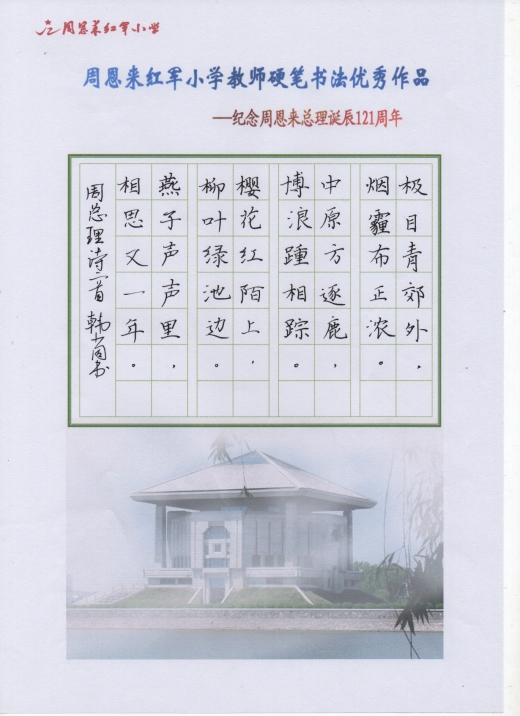 周恩来红军小学
周恩来红军小学教师硬笔书法优秀作品
—纪念周恩来总理诞辰121周年
极目青郊外，
烟霾布正浓。
中原方逐鹿，
博浪踵相踪。
樱花红陌上，
柳叶绿池边。
燕子声声里，
相思又一年。
周总理诗二首